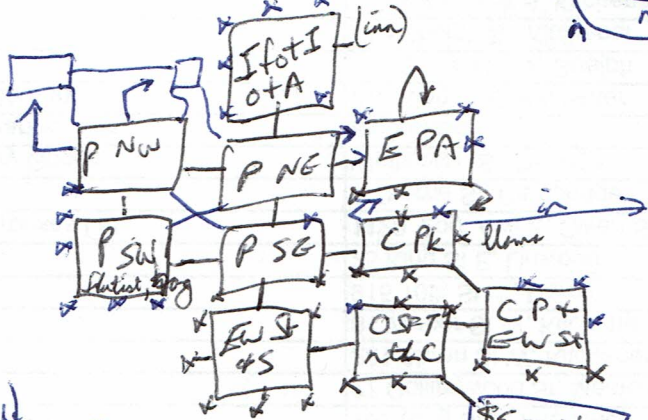 (inn)
I fot I
o t A
P NW
P NE
E PA
in
P SW
flutist, dog
P SE
C PK
llama
EW St
+ S
O S F T
n th C
C P +
E W St